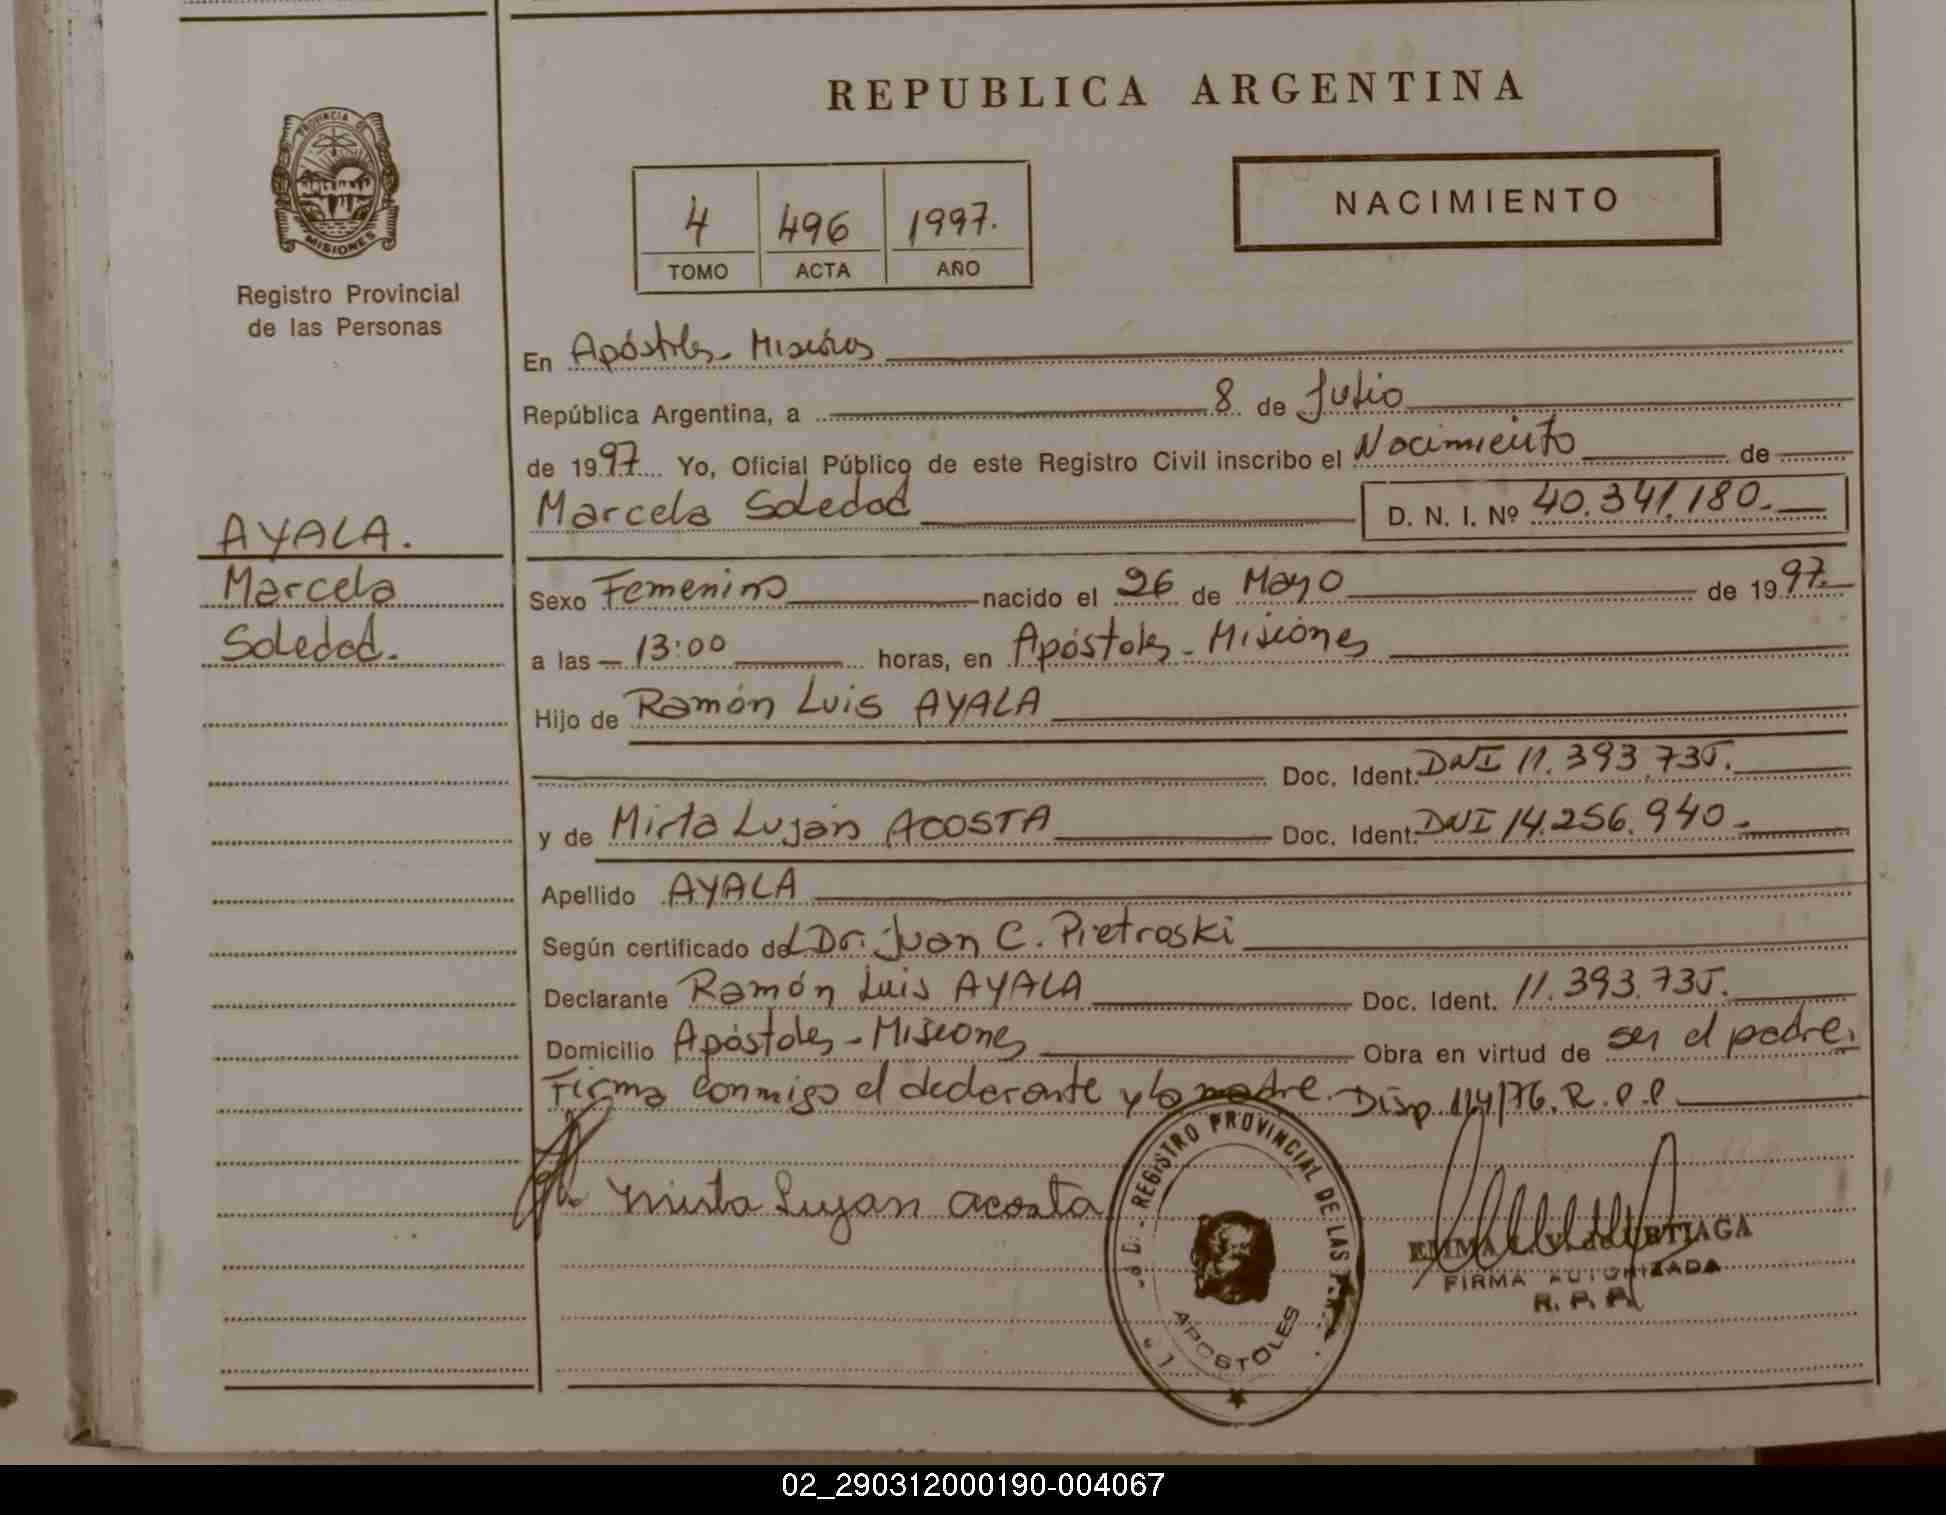 REPUBLICA ARGENTINA
PROVINCIA DE
MISIONES
Registro Provincial
de las Personas
NACIMIENTO
4 496 1997.
TOMO ACTA AÑO
En Apóstoles - Misiones
República Argentina, a 8 de Julio
de 1997 Yo, Oficial Público de este Registro Civil inscribo el Nacimiento de
Marcela Soledad D. N. I. Nº 40.341.180.-
AYALA.
Marcela
Soledad.
Sexo Femenino nacido el 26 de Mayo de 1997.
a las - 13:00 horas, en Apóstoles - Misiones
Hijo de Ramón Luis AYALA
Doc. Ident. DNI 11.393.735.
y de Mirta Luján ACOSTA Doc. Ident. DNI 14.256.940.-
Apellido AYALA
Según certificado del Dr. Juan C. Pietroski
Declarante Ramón Luis AYALA Doc. Ident. 11.393.735.
Domicilio Apóstoles - Misiones Obra en virtud de ser el padre.
Firma conmigo el declarante y la madre. Disp. 114/76. R.P.P.
Mirta Lujan acosta
REGISTRO PROVINCIAL DE LAS
APOSTOLES
EMMA URTIAGA
FIRMA AUTORIZADA
R. P. P.
02_290312000190-004067